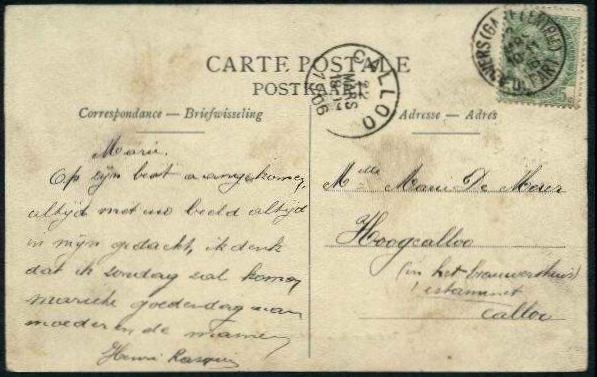 CARTE POSTALE
POSTKAART
Correspondance — Briefwisseling
Adresse — Adres
CALLOO
22
MARS
1906
Marie.
Op zijn best aangekomen,
altijd met uw beeld altijd
in mijn gedacht, ik denk
dat ik zondag zal komen
marieke goedendag aan
moeder en de mamen
Henri
Melle Marie De Maer
Hoogcalloo
(in het brouwershuis)
estaminet
Calloo